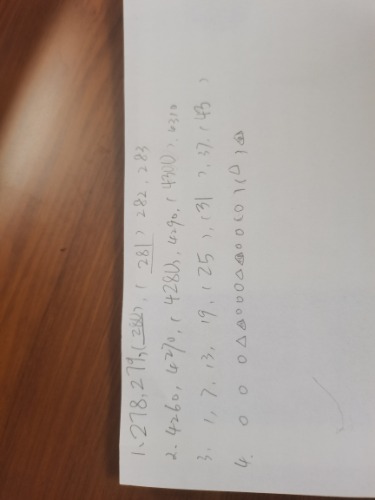 1、278,279,(280),(281) 282、283
2、4260,4270,(4280),4290,(4300),4310
3、1,7,13,19,(25),(31),37,(43)
4、○ ○ ○ ○△△○○○△△○○(○),(△)△